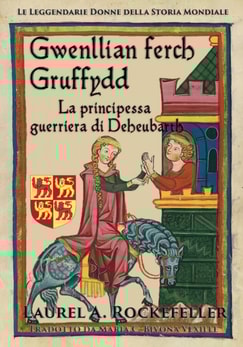 Le Leggendarie Donne della Storia Mondiale
Gwenllian ferch
Gruffydd
La principessa
guerriera di Deheubarth
Laurel A. Rockefeller
Tradotto da Maria C.